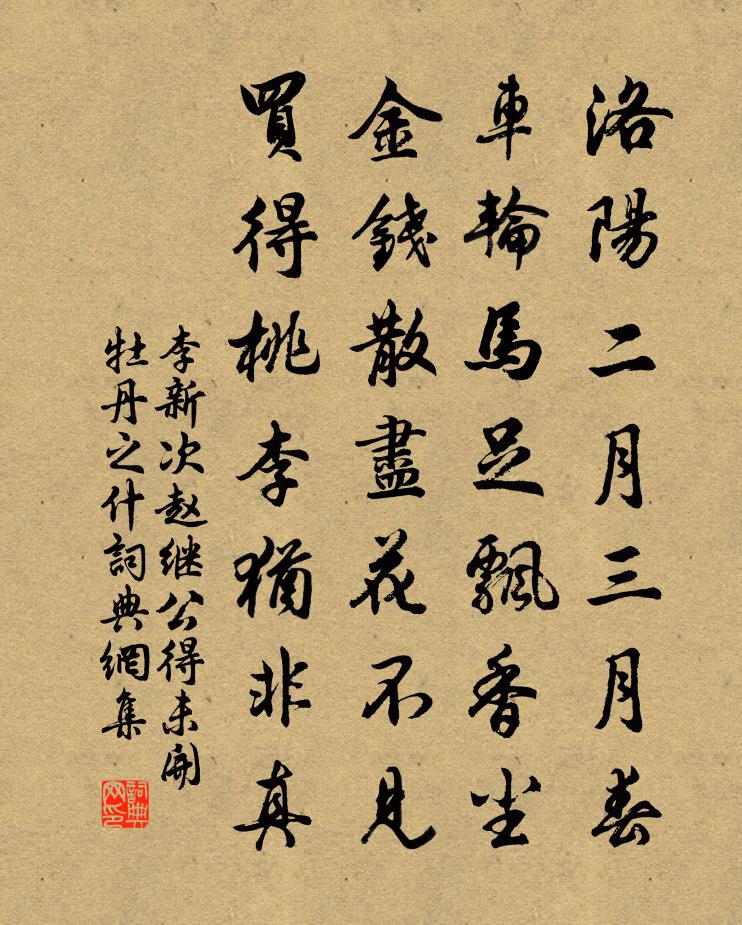 洛陽二月三月春
車輪馬足飄香尘
金錢散盡花不見
買得桃李猶非真
李新次赵继公得未開
牡丹之什詞典網集
詞典网印